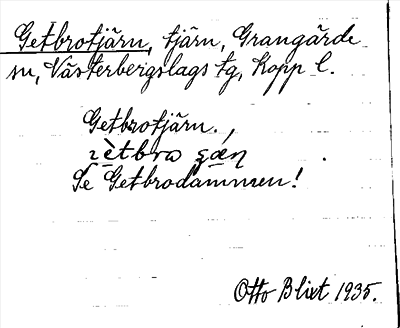 Getbrotjärn, tjärn, Grangärde
sn, Västerbergslags tg, Kopp l.
Getbrotjärn.
Se Getbrodammen!
Otto Blixt 1935.